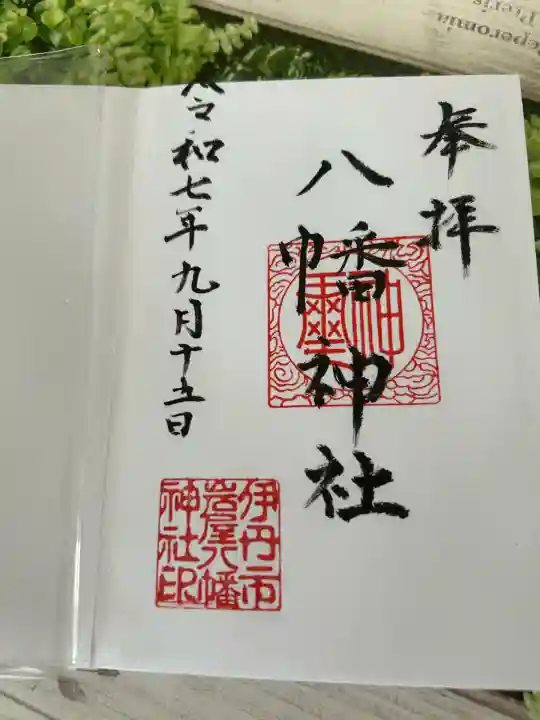 奉拝
八幡神社
令和七年九月十五日
神璽
伊丹市
岩屋八幡
神社印
Peperomia
Pieris